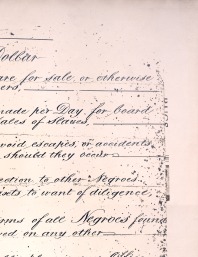 Dolbar
are for sale, or otherwise
ers,
made per Day for board
ales of slaves,
void escapes, or accidents,
should they occur
ection to other Negroes
ists to want of diligence,
rms of all Negroes found
ed on any other